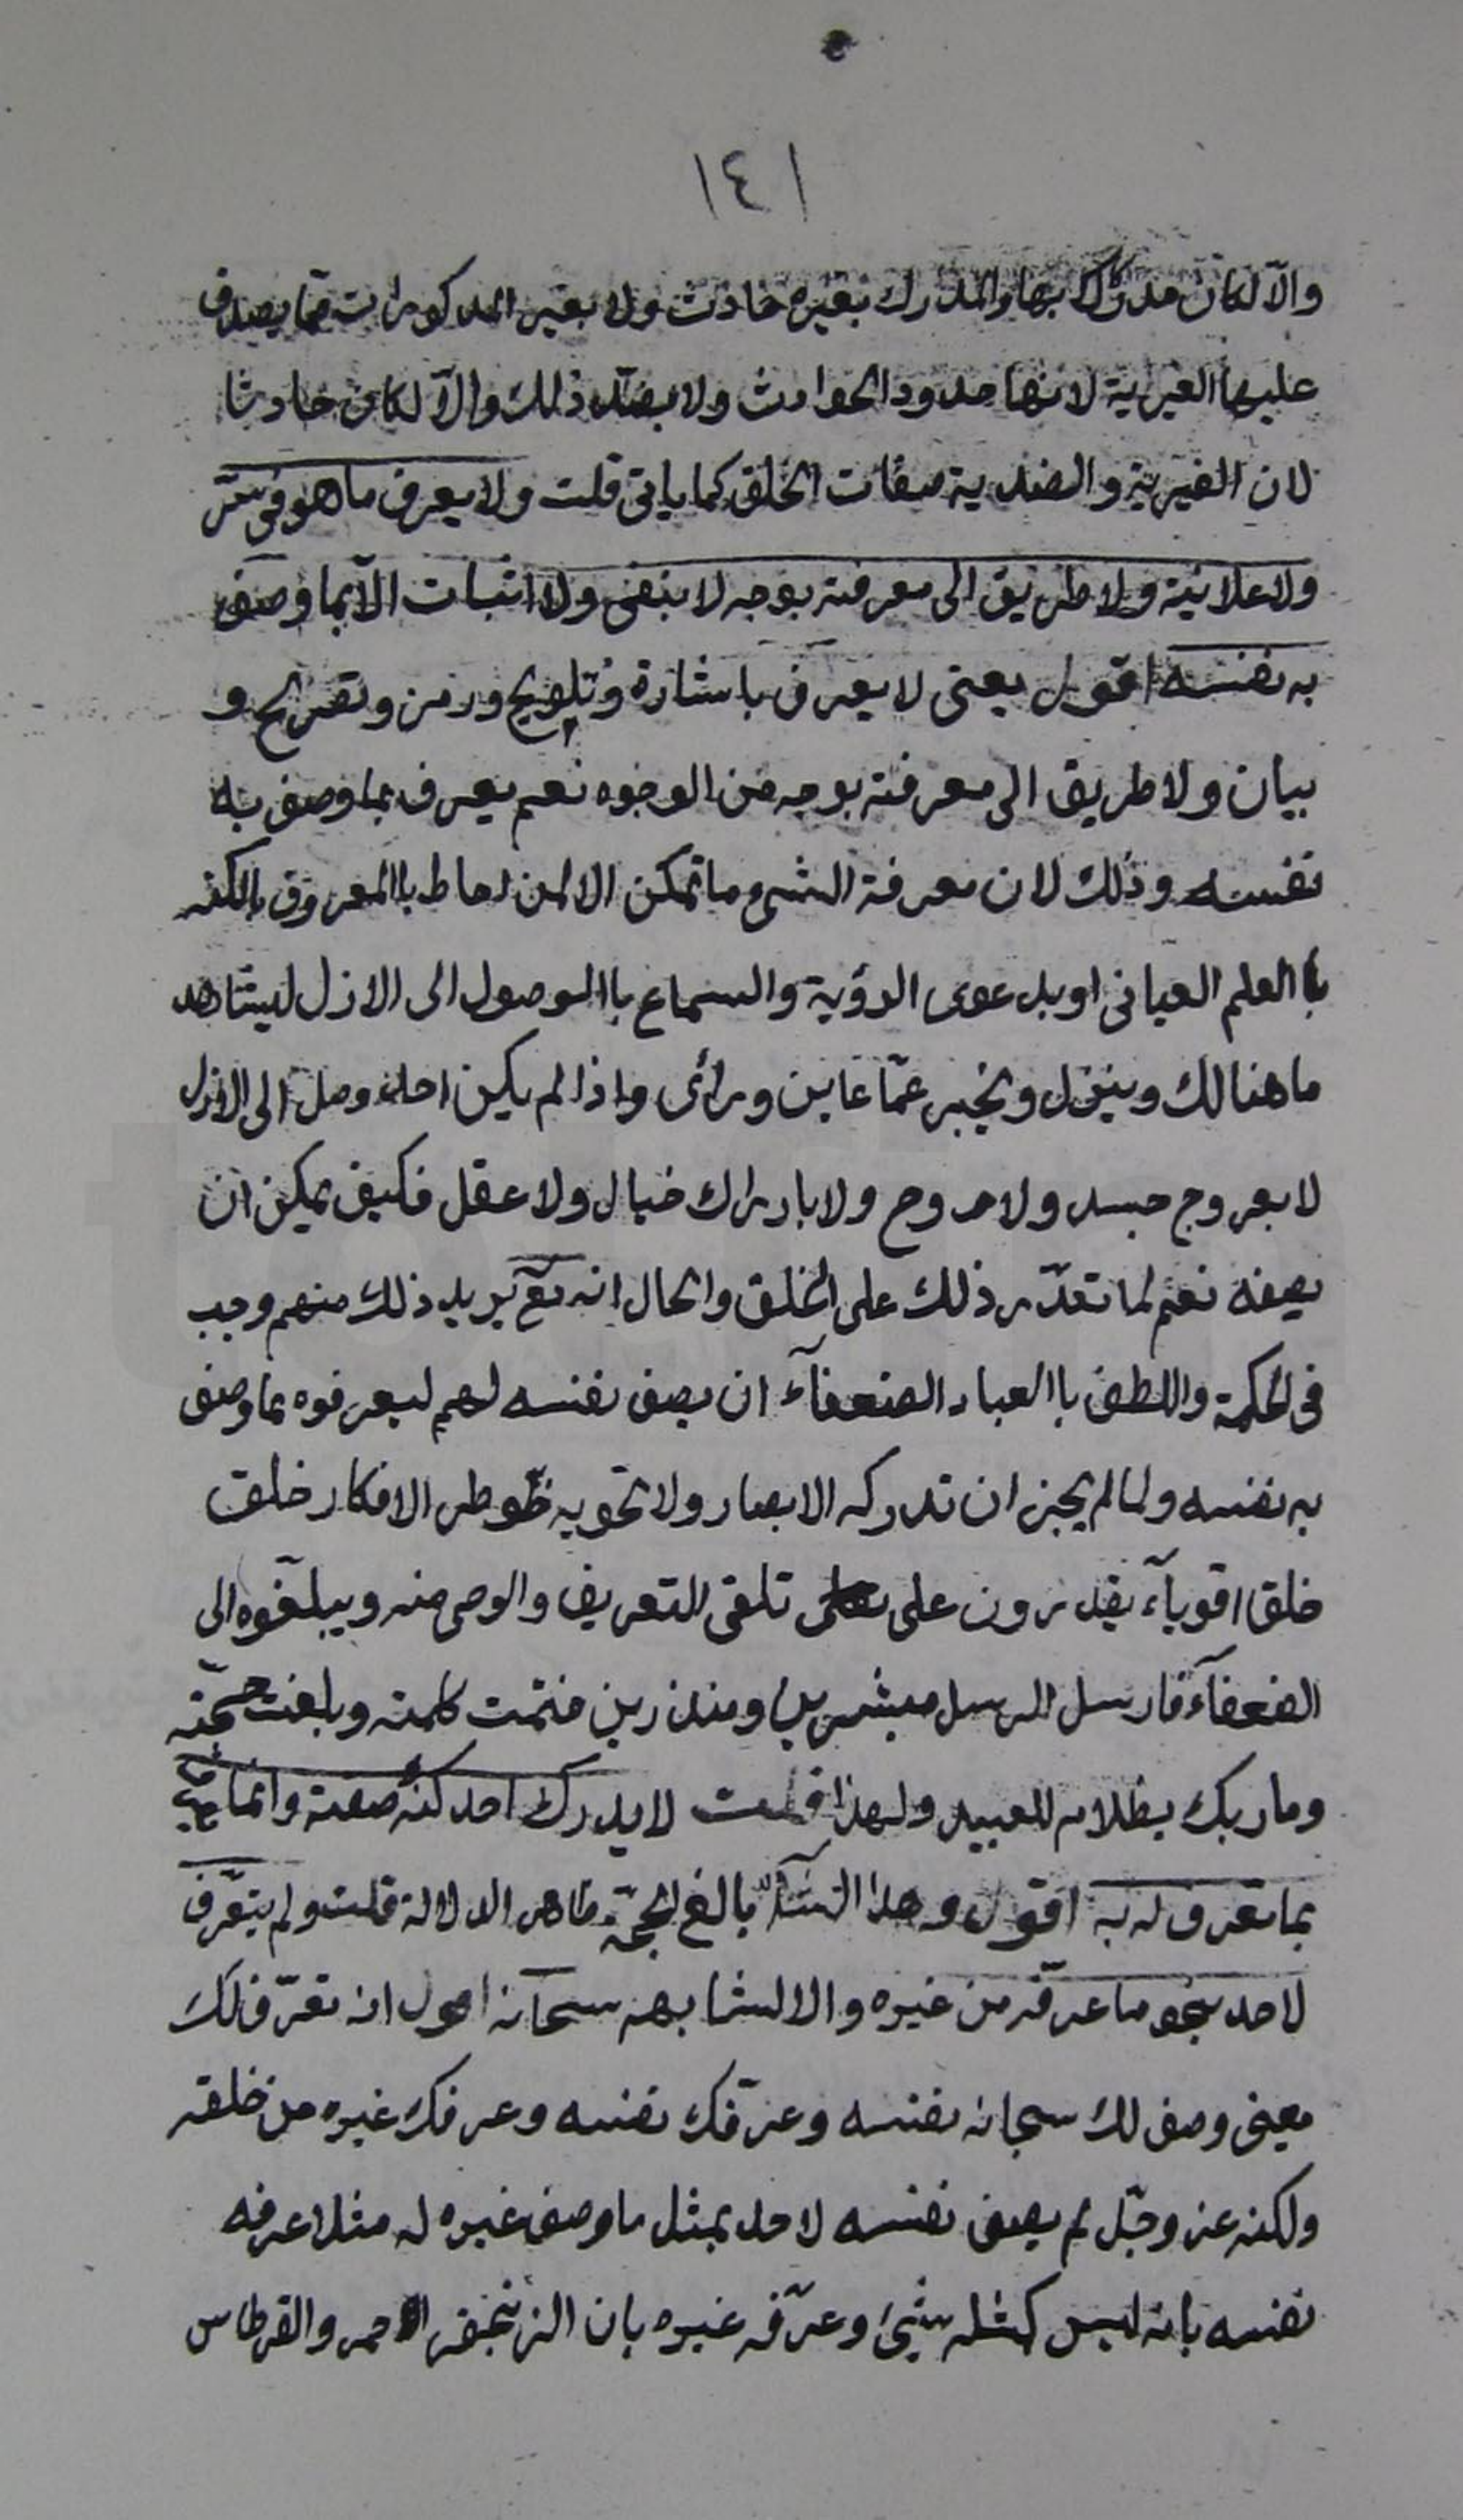 ١٤١
والّا لكان مدركا بها والمدرك بغيره حادث ولا بغير المذكورات مما يصدق
عليها الغيرية لانها حدود الحوادث ولا بضد ذلك والّا لكان حادثا
لان الغيرية والضدية صفات الخلق كما ياتى قلت ولا يعرف ما هو فى سرّ
ولا علانية ولا طريق الى معرفته بوجه لا بنفى ولا اثبات الّا بما وصف
به نفسه اقول يعنى لا يعرف باشارة وتلويح ورمز وتصريح و
بيان ولا طريق الى معرفته بوجه من الوجوه نعم يعرف بما وصف به
نفسه وذلك لان معرفة الشىء ما تمكن الا لمن احاط باالمعروف بالكنه
باالعلم العيانى او بدعوى الرؤية والسماع باالوصول الى الازل ليشاهد
ما هنالك وينزل ويخبر عمّا عاين ورأى واذا لم يكن احد وصل الى الازل
لا بعروج جسد ولا روح ولا بادراك خيال ولا عقل فكيف يمكن ان
يصفه نعم لما تعذّر ذلك على الخلق والحال انه تع يريد ذلك منهم وجب
فى الحكمة واللطف باالعباد الضعفآء ان يصف نفسه لهم ليعرفوه بما وصف
به نفسه ولما لم يجز ان تدركه الابصار ولا تحويه خواطر الافكار خلق
خلقا اقويآء يقدرون على تلقى التعريف والوحى منه ويبلّغوه الى
الضعفآء فارسل الرسل مبشرين ومنذرين فتمت كلمته وبلغت حجّته
وما ربك بظلام للعبيد ولهذا قلت لا يدرك احد كنه صفته وانما يعرفه
بما تعرف له به اقول وهذا بالغ الحجّة ظاهر الدلالة قلت ولم يتعرّف
لاحد بنحو ما عرّفه من غيره والا لشابهه سبحانه اقول انه تعرّف لك
يعنى وصف لك سبحانه نفسه وعرّفك نفسه وعرفك غيره من خلقه
ولكنه عز وجّل لم يصف نفسه لاحد بمثل ما وصف غيره له مثلا عرفه
نفسه بانه ليس كمثله شىئ وعرّفه غيره بان الزنجفر احمر والقرطاس